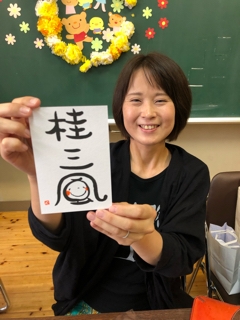 桂
三
風